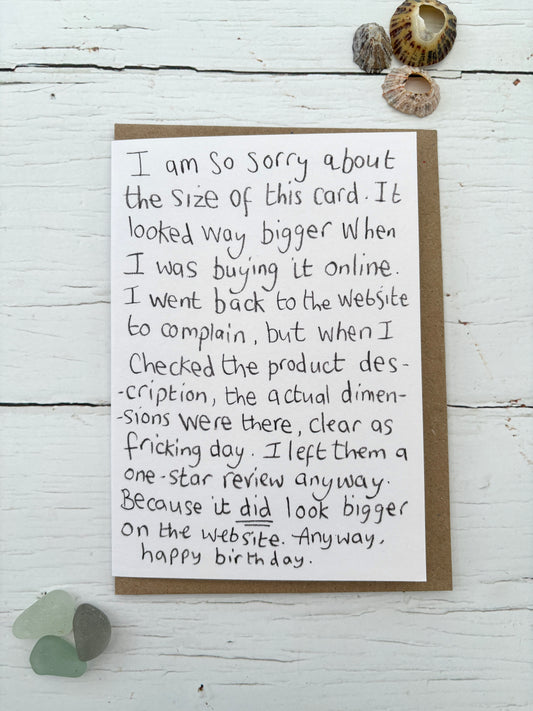 I am so sorry about
the size of this card. It
looked way bigger when
I was buying it online.
I went back to the website
to complain, but when I
checked the product des-
-cription, the actual dimen-
-sions were there, clear as
fricking day. I left them a
one-star review anyway.
Because it did look bigger
on the website. Anyway,
happy birthday.